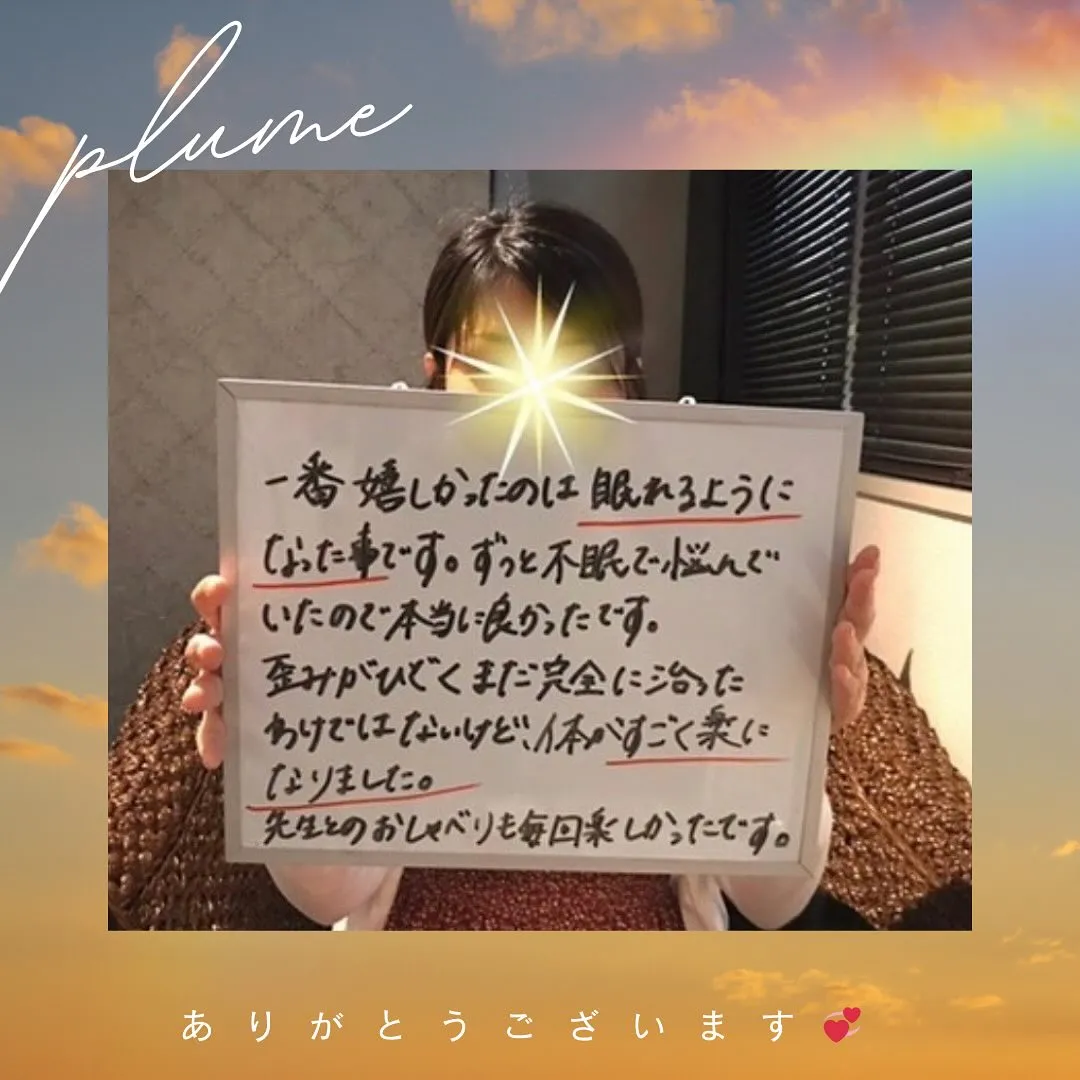 plume
一番嬉しかったのは眠れるように
なった事です。ずっと不眠で悩んで
いたので本当に良かったです。
歪みがひどくまだ完全に治った
わけではないけど、体がすごく楽に
なりました。
先生とのおしゃべりも毎回楽しかったです。
ありがとうございます💞